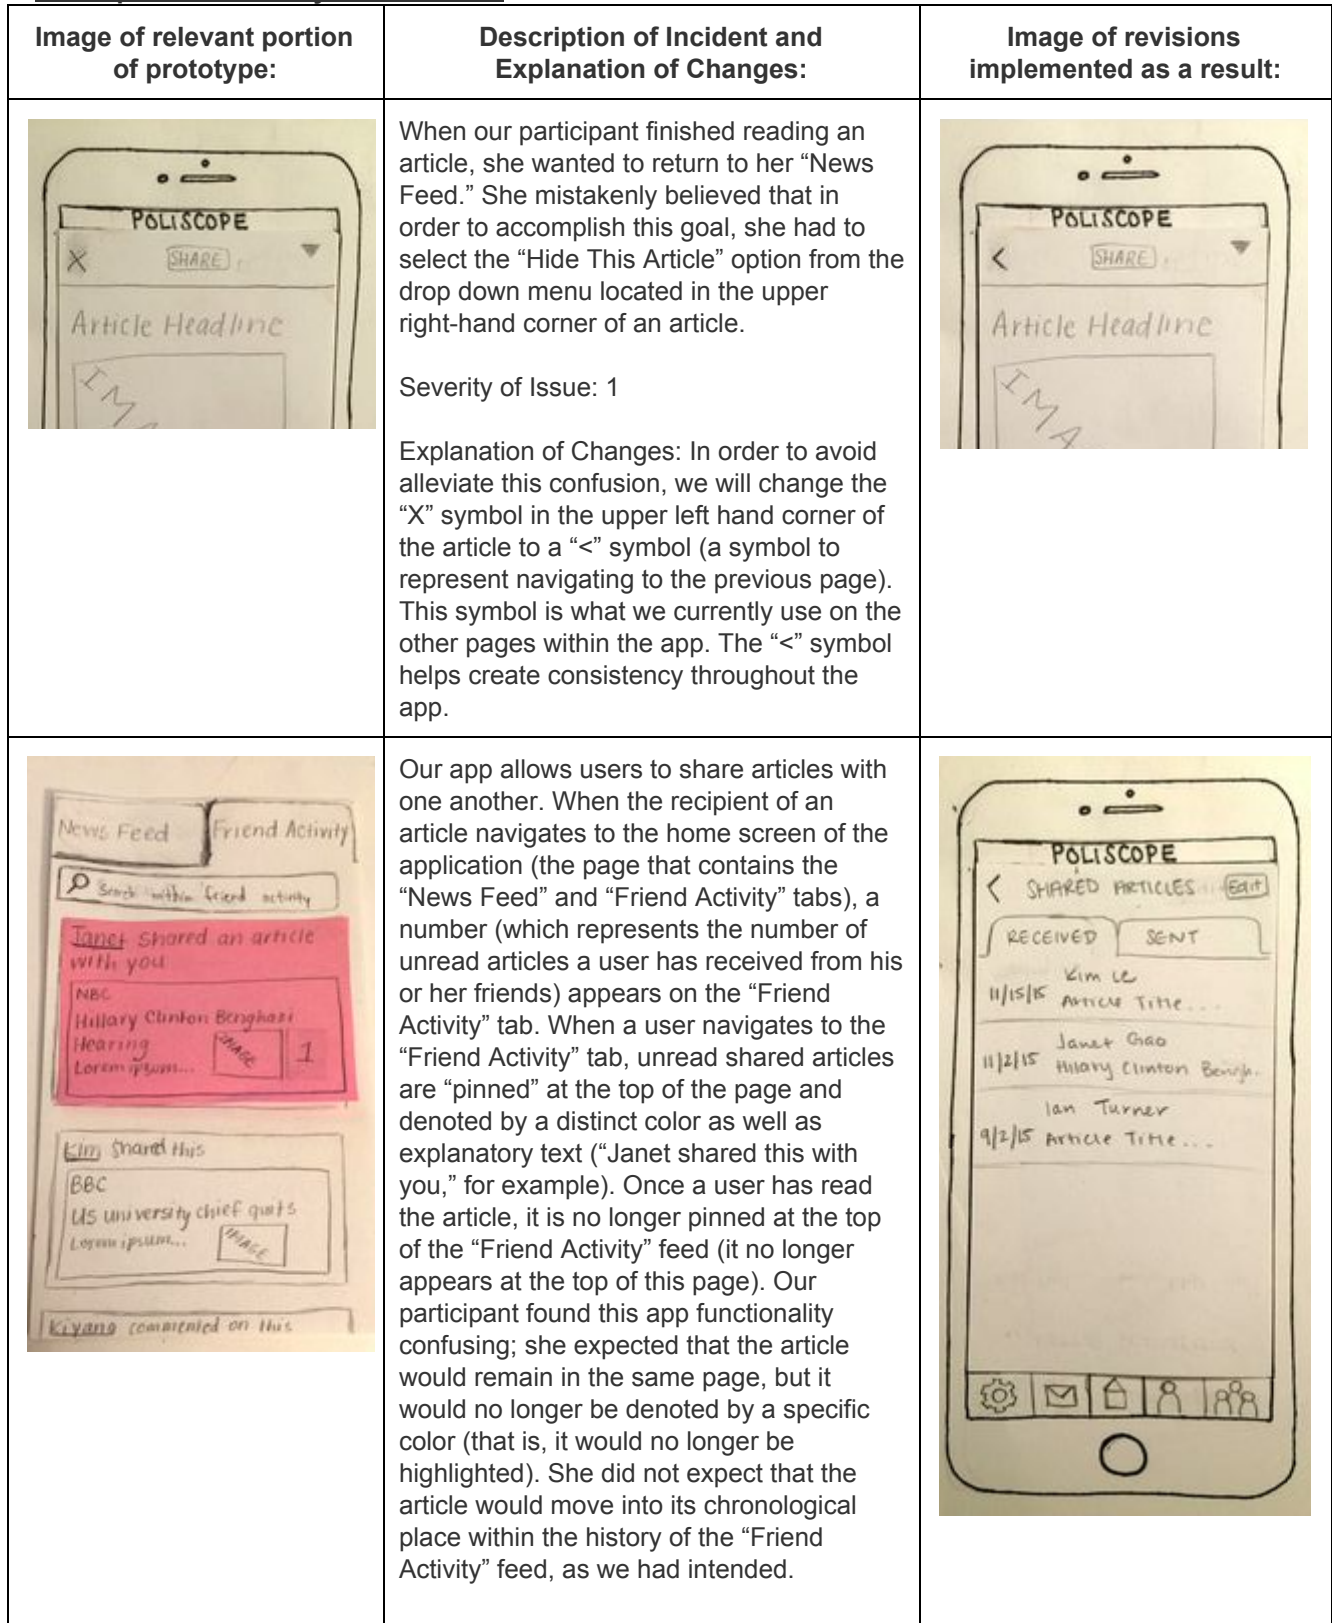 Image of relevant portion
of prototype:
Description of Incident and
Explanation of Changes:
Image of revisions
implemented as a result:
POLISCOPE
X
SHARE
Article Headline
IMA
When our participant finished reading an
article, she wanted to return to her “News
Feed.” She mistakenly believed that in
order to accomplish this goal, she had to
select the “Hide This Article” option from the
drop down menu located in the upper
right-hand corner of an article.
Severity of Issue: 1
Explanation of Changes: In order to avoid
alleviate this confusion, we will change the
“X” symbol in the upper left hand corner of
the article to a “<” symbol (a symbol to
represent navigating to the previous page).
This symbol is what we currently use on the
other pages within the app. The “<” symbol
helps create consistency throughout the
app.
POLISCOPE
< SHARE
Article Headline
IMA
News Feed Friend Activity
Search within friend activity
Janet shared an article
with you
NBC
Hillary Clinton Benghazi
Hearing
Lorem ipsum...
IMAGE
1
Kim shared this
BBC
US university chief quits
Lorem ipsum...
IMAGE
Kiyang commented on this
Our app allows users to share articles with
one another. When the recipient of an
article navigates to the home screen of the
application (the page that contains the
“News Feed” and “Friend Activity” tabs), a
number (which represents the number of
unread articles a user has received from his
or her friends) appears on the “Friend
Activity” tab. When a user navigates to the
“Friend Activity” tab, unread shared articles
are “pinned” at the top of the page and
denoted by a distinct color as well as
explanatory text (“Janet shared this with
you,” for example). Once a user has read
the article, it is no longer pinned at the top
of the “Friend Activity” feed (it no longer
appears at the top of this page). Our
participant found this app functionality
confusing; she expected that the article
would remain in the same page, but it
would no longer be denoted by a specific
color (that is, it would no longer be
highlighted). She did not expect that the
article would move into its chronological
place within the history of the “Friend
Activity” feed, as we had intended.
POLISCOPE
< SHARED ARTICLES Edit
RECEIVED SENT
Kim Le
11/15/15 Article Title...
Janet Gao
11/2/15 Hillary Clinton Bengh.
Ian Turner
9/2/15 Article Title...